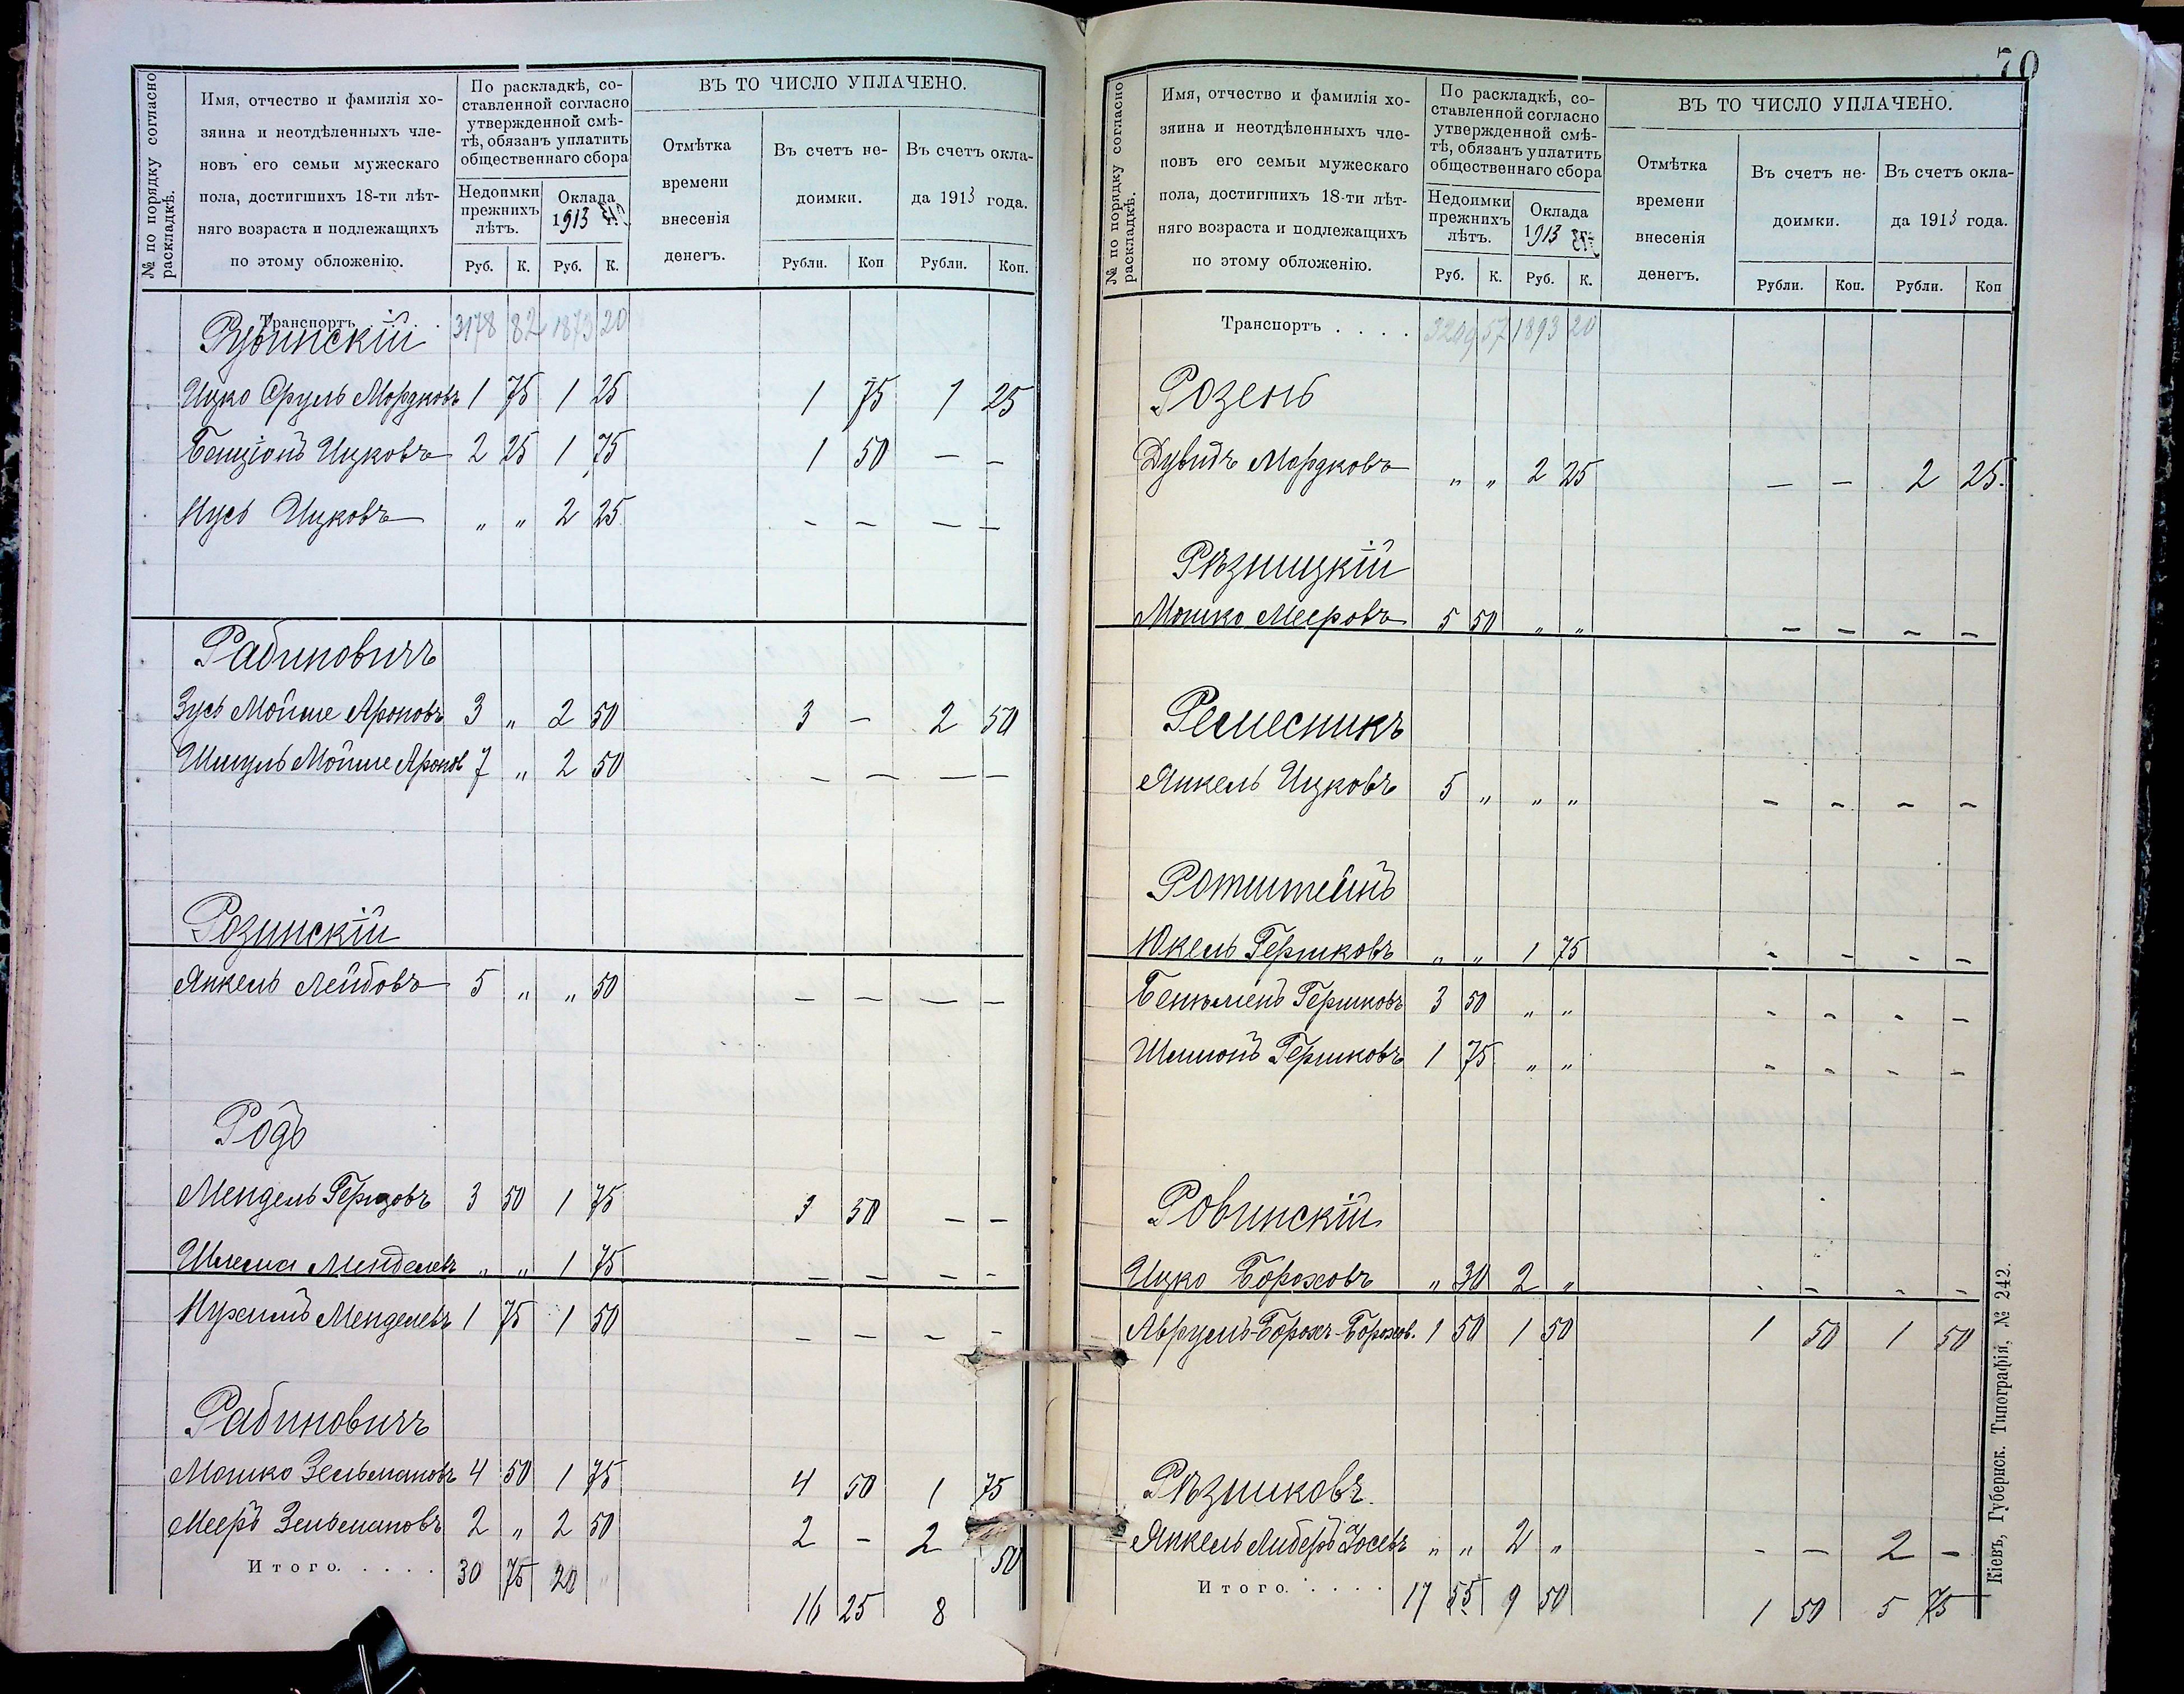 № по порядку согласно раскладкѣ.
Имя, отчество и фамилія хо-
зяина и неотдѣленныхъ чле-
новъ его семьи мужескаго
пола, достигшихъ 18-ти лѣт-
няго возраста и подлежащихъ
по этому обложенію.
По раскладкѣ, со-
ставленной согласно
утвержденной смѣ-
тѣ, обязанъ уплатить
общественнаго сбора
Недоимки прежнихъ лѣтъ.
Оклада 1913
Руб. К. Руб. К.
ВЪ ТО ЧИСЛО УПЛАЧЕНО.
Отмѣтка
времени
внесенія
денегъ.
Въ счетъ не-
доимки.
Въ счетъ окла-
да 1913 года.
Рубли. Коп Рубли. Коп.
Транспортъ . . 3178 82 1873 20
Рубинскій
Ицко Сруль Мордковъ 1 75 1 25 1 75 1 25
Бенціонъ Ицковъ 2 25 1 75 1 50 — —
Нусь Ицковъ „ „ 2 25 — — — —
Рабиновичъ
Зусь Мойше Ароновъ 3 „ 2 50 3 — 2 50
Шмуль Мойше Аронов 7 „ 2 50 — — — —
Розинскій
Янкель Лейбовъ 5 „ „ 50 — — — —
Родъ
Мендель Герцовъ 3 50 1 75 3 50 — —
Шлема Менделевъ „ „ 1 75 — — — —
Нухимъ Менделевъ 1 75 1 50 — — — —
Рабиновичъ
Мошко Зельмановъ 4 50 1 75 4 50 1 75
Мееръ Зельмановъ 2 „ 2 50 2 — 2 50
Итого. . . . . 30 75 20 „ 16 25 8
70
№ по порядку согласно раскладкѣ.
Имя, отчество и фамилія хо-
зяина и неотдѣленныхъ чле-
новъ его семьи мужескаго
пола, достигшихъ 18-ти лѣт-
няго возраста и подлежащихъ
по этому обложенію.
По раскладкѣ, со-
ставленной согласно
утвержденной смѣ-
тѣ, обязанъ уплатить
общественнаго сбора
Недоимки прежнихъ лѣтъ.
Оклада 1913
Руб. К. Руб. К.
ВЪ ТО ЧИСЛО УПЛАЧЕНО.
Отмѣтка
времени
внесенія
денегъ.
Въ счетъ не-
доимки.
Въ счетъ окла-
да 1913 года.
Рубли. Коп. Рубли. Коп
Транспортъ . . . . 3209 57 1893 20
Розенъ
Дувидъ Мордковъ „ „ 2 25 — — 2 25.
Рѣзницкій
Мошко Мееровъ 5 50 „ „ — — — —
Ремесникъ
Янкель Ицковъ 5 „ „ „ — — — —
Ротштейнъ
Юкель Гершковъ „ „ 1 75 - - - -
Беньяменъ Гершковъ 3 50 „ „ - - - -
Шимонъ Гершковъ 1 75 „ „ - - - -
Ровинскій
Ицко Бороховъ „ 30 2 „ - - - -
Аврумъ-Борохъ Борохов. 1 50 1 50 1 50 1 50
Рѣзниковъ.
Янкель Либеръ Іосевъ „ „ 2 „ - — 2 —
Итого. . . . . 17 55 9 50 1 50 5 75
Кіевъ, Губернск. Типографія, № 242.